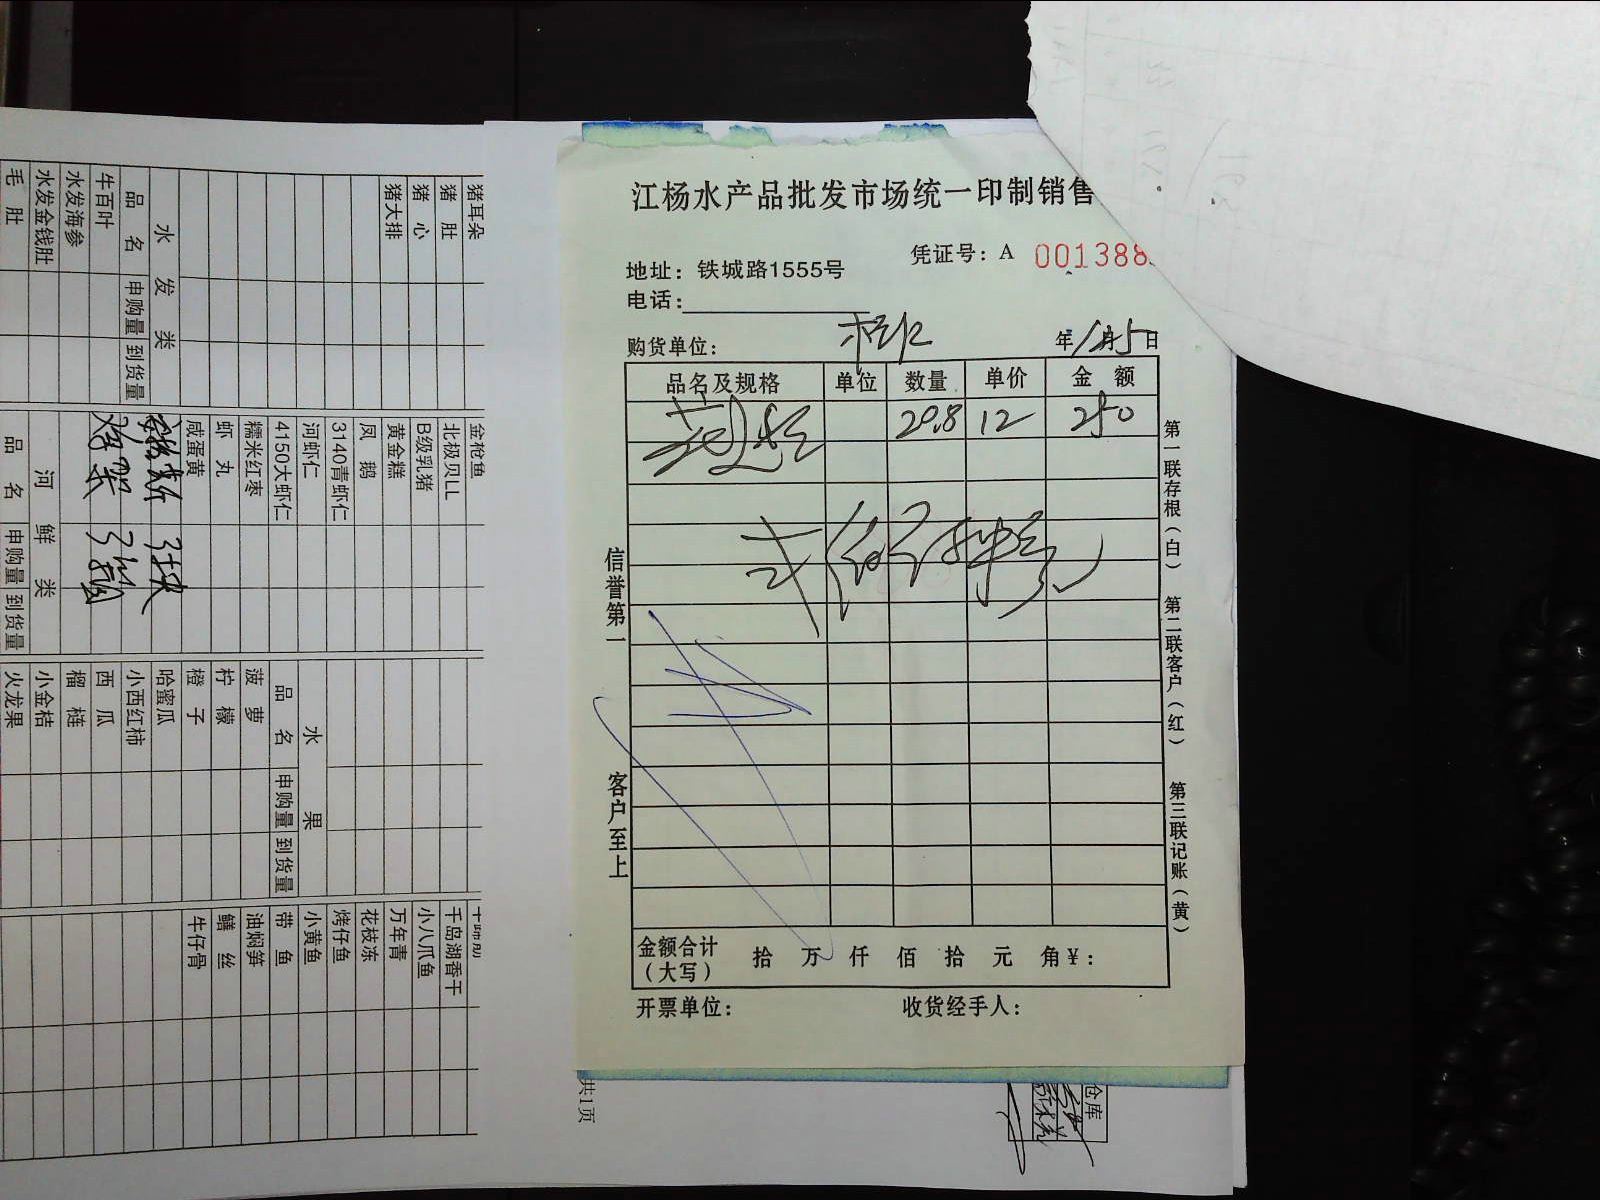 江杨水产品批发市场统一印制销售
凭证号：A 001388
地址：铁城路1555号
电话：
购货单位：
年 1月5日
品名及规格 单位 数量 单价 金 额
20.8 12 250
信誉第一
客户至上
第一联存根（白）
第二联客户（红）
第三联记账（黄）
金额合计（大写） 拾 万 仟 佰 拾 元 角￥：
开票单位： 收货经手人：
共1页
仓库
猪耳朵
猪 肚
猪 心
猪大排
水 发 类
品 名 申购量 到货量
牛百叶
水发海参
水发金钱肚
毛 肚
金枪鱼
北极贝LL
B级乳猪
黄金糕
凤 鹅
3140青虾仁
河虾仁
4150大虾仁
糯米红枣
虾 丸
咸蛋黄
河 鲜 类
品 名 申购量 到货量
水 果
品 名 申购量 到货量
菠 萝
柠 檬
橙 子
哈蜜瓜
小西红柿
西 瓜
榴 梿
小金桔
火龙果
千岛湖香干
小八爪鱼
万年青
花枝冻
烤仔鱼
小黄鱼
带 鱼
油焖笋
鳝 丝
牛仔骨